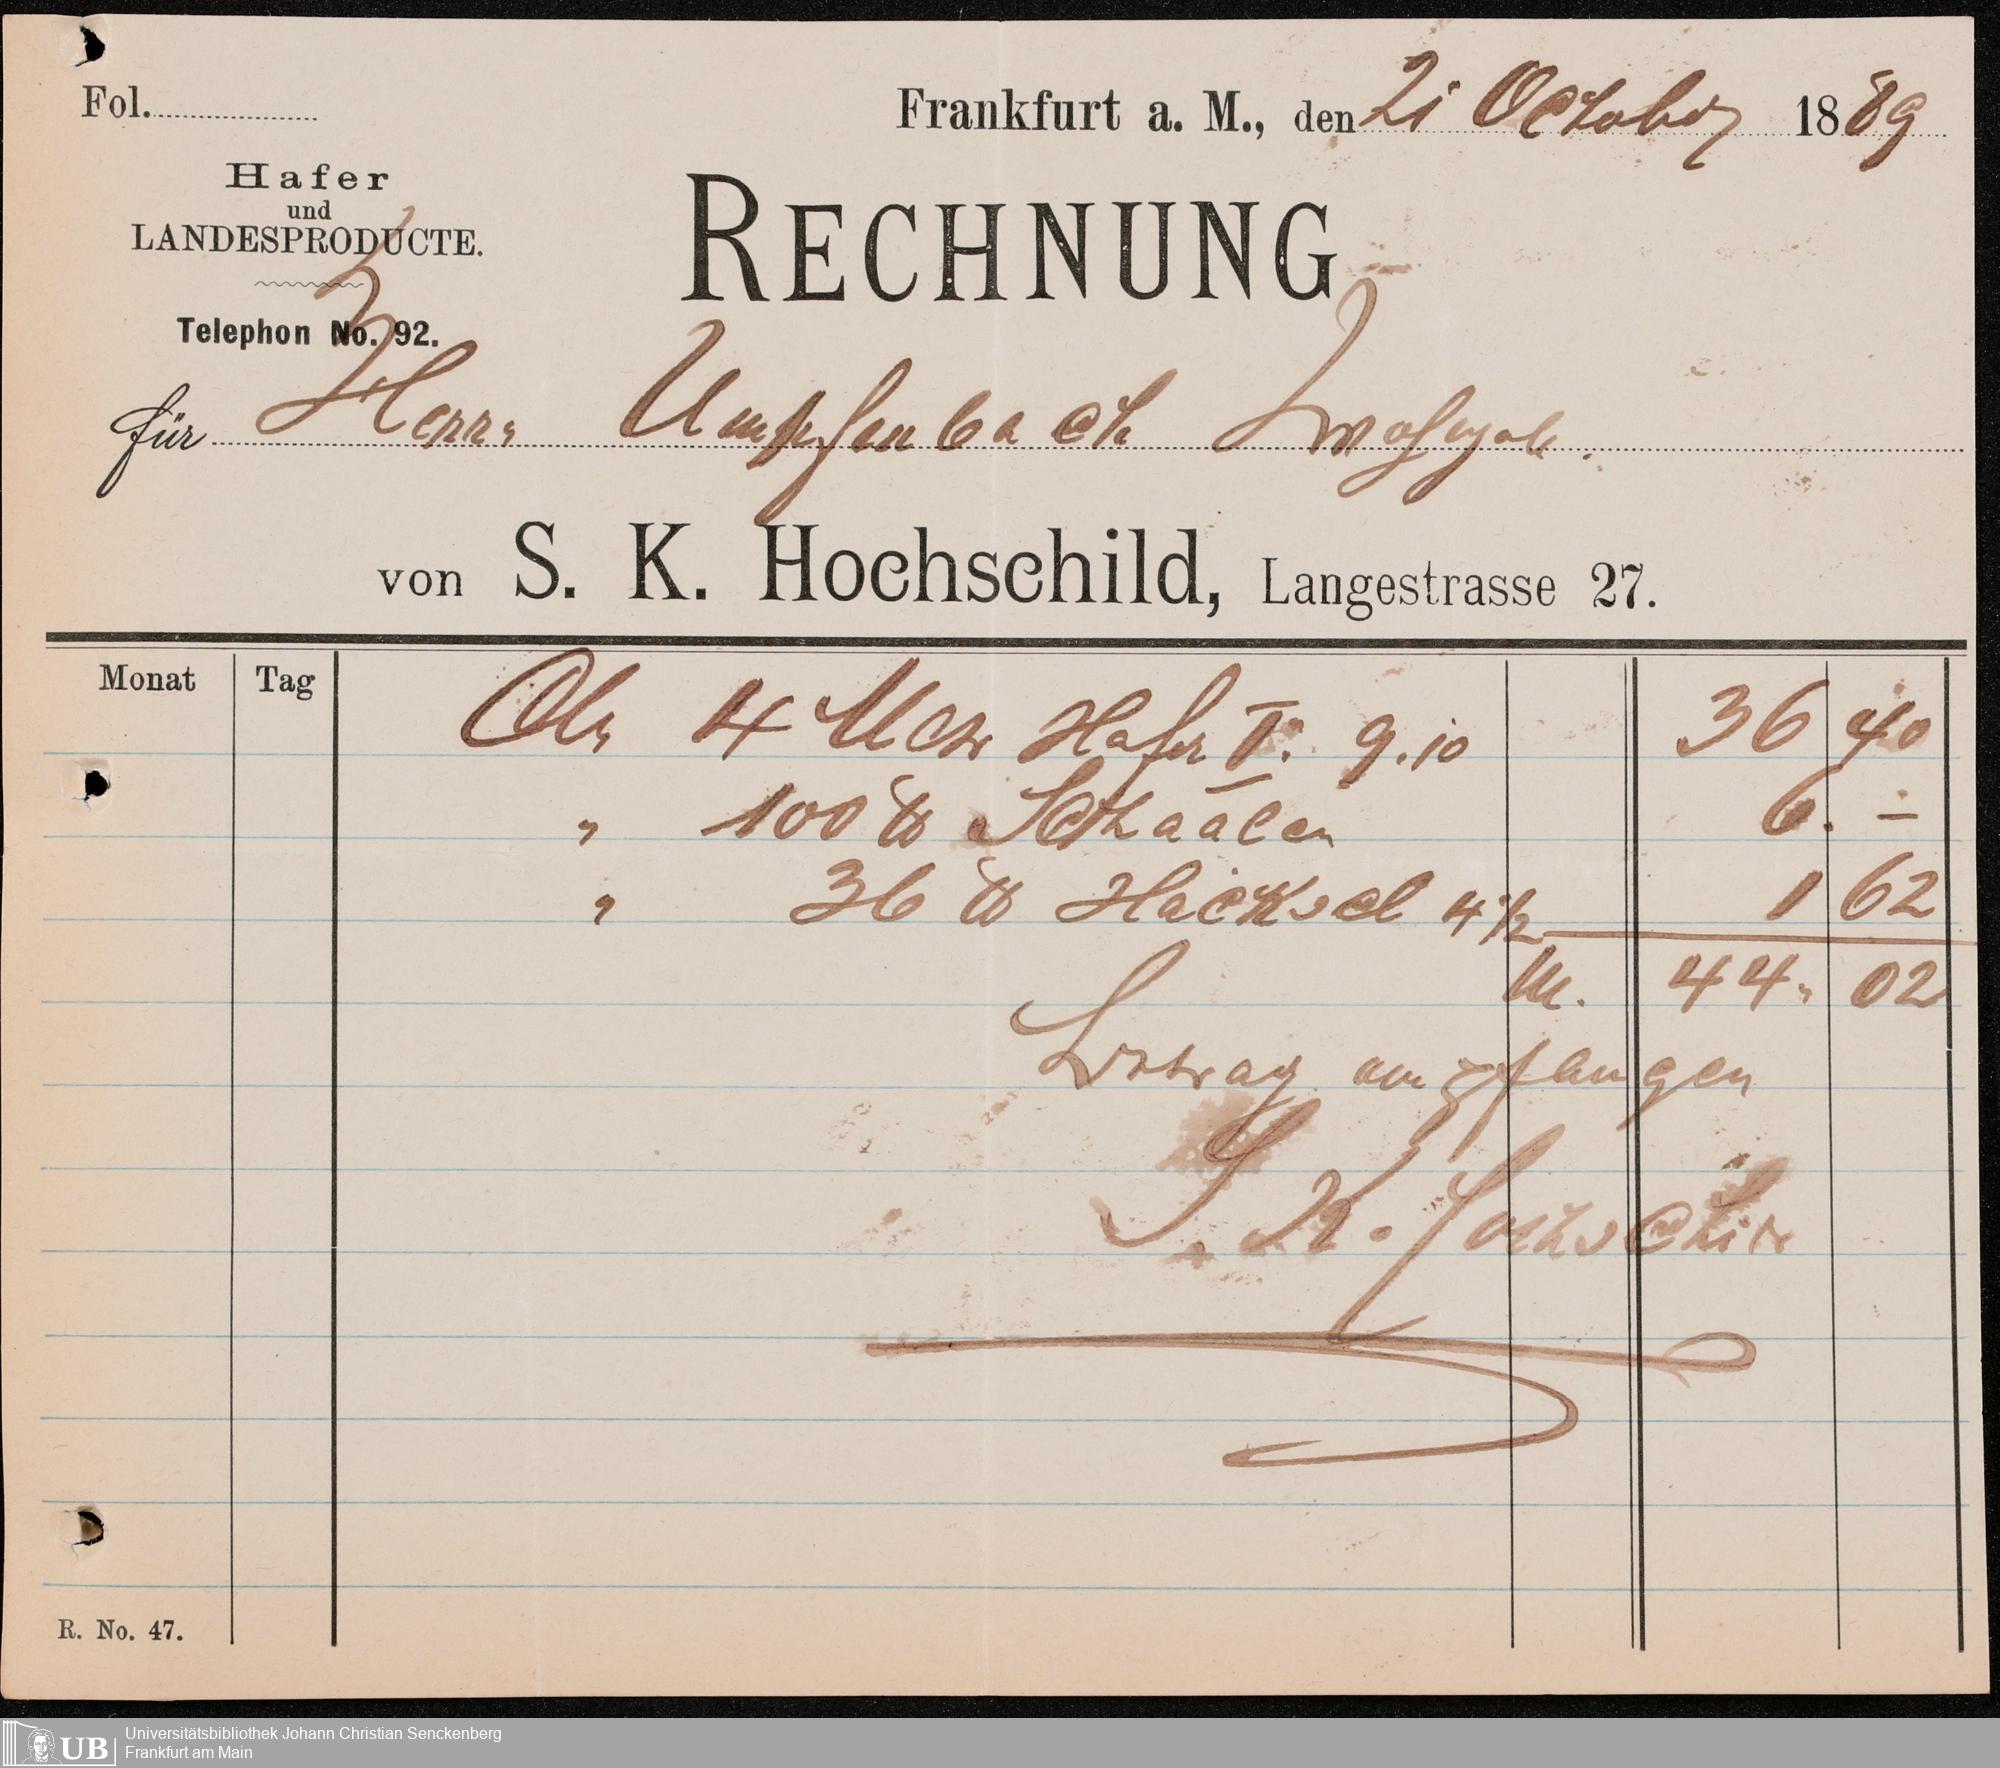 Fol.
Frankfurt a. M., den 21 October 1889
Hafer
und
LANDESPRODUCTE.
Telephon No. 92.
RECHNUNG
für Herrn Umpfenbach
von S. K. Hochschild, Langestrasse 27.
Monat Tag
4 Mctr Hafer I. 9.10 36 40
" 100 ℔ Schaalen 6. —
" 36 ℔ Häcksel 4 1/2 1 62
M. 44. 02
Betrag empfangen
S. K. Hochschild
R. No. 47.
UB
Universitätsbibliothek Johann Christian Senckenberg
Frankfurt am Main